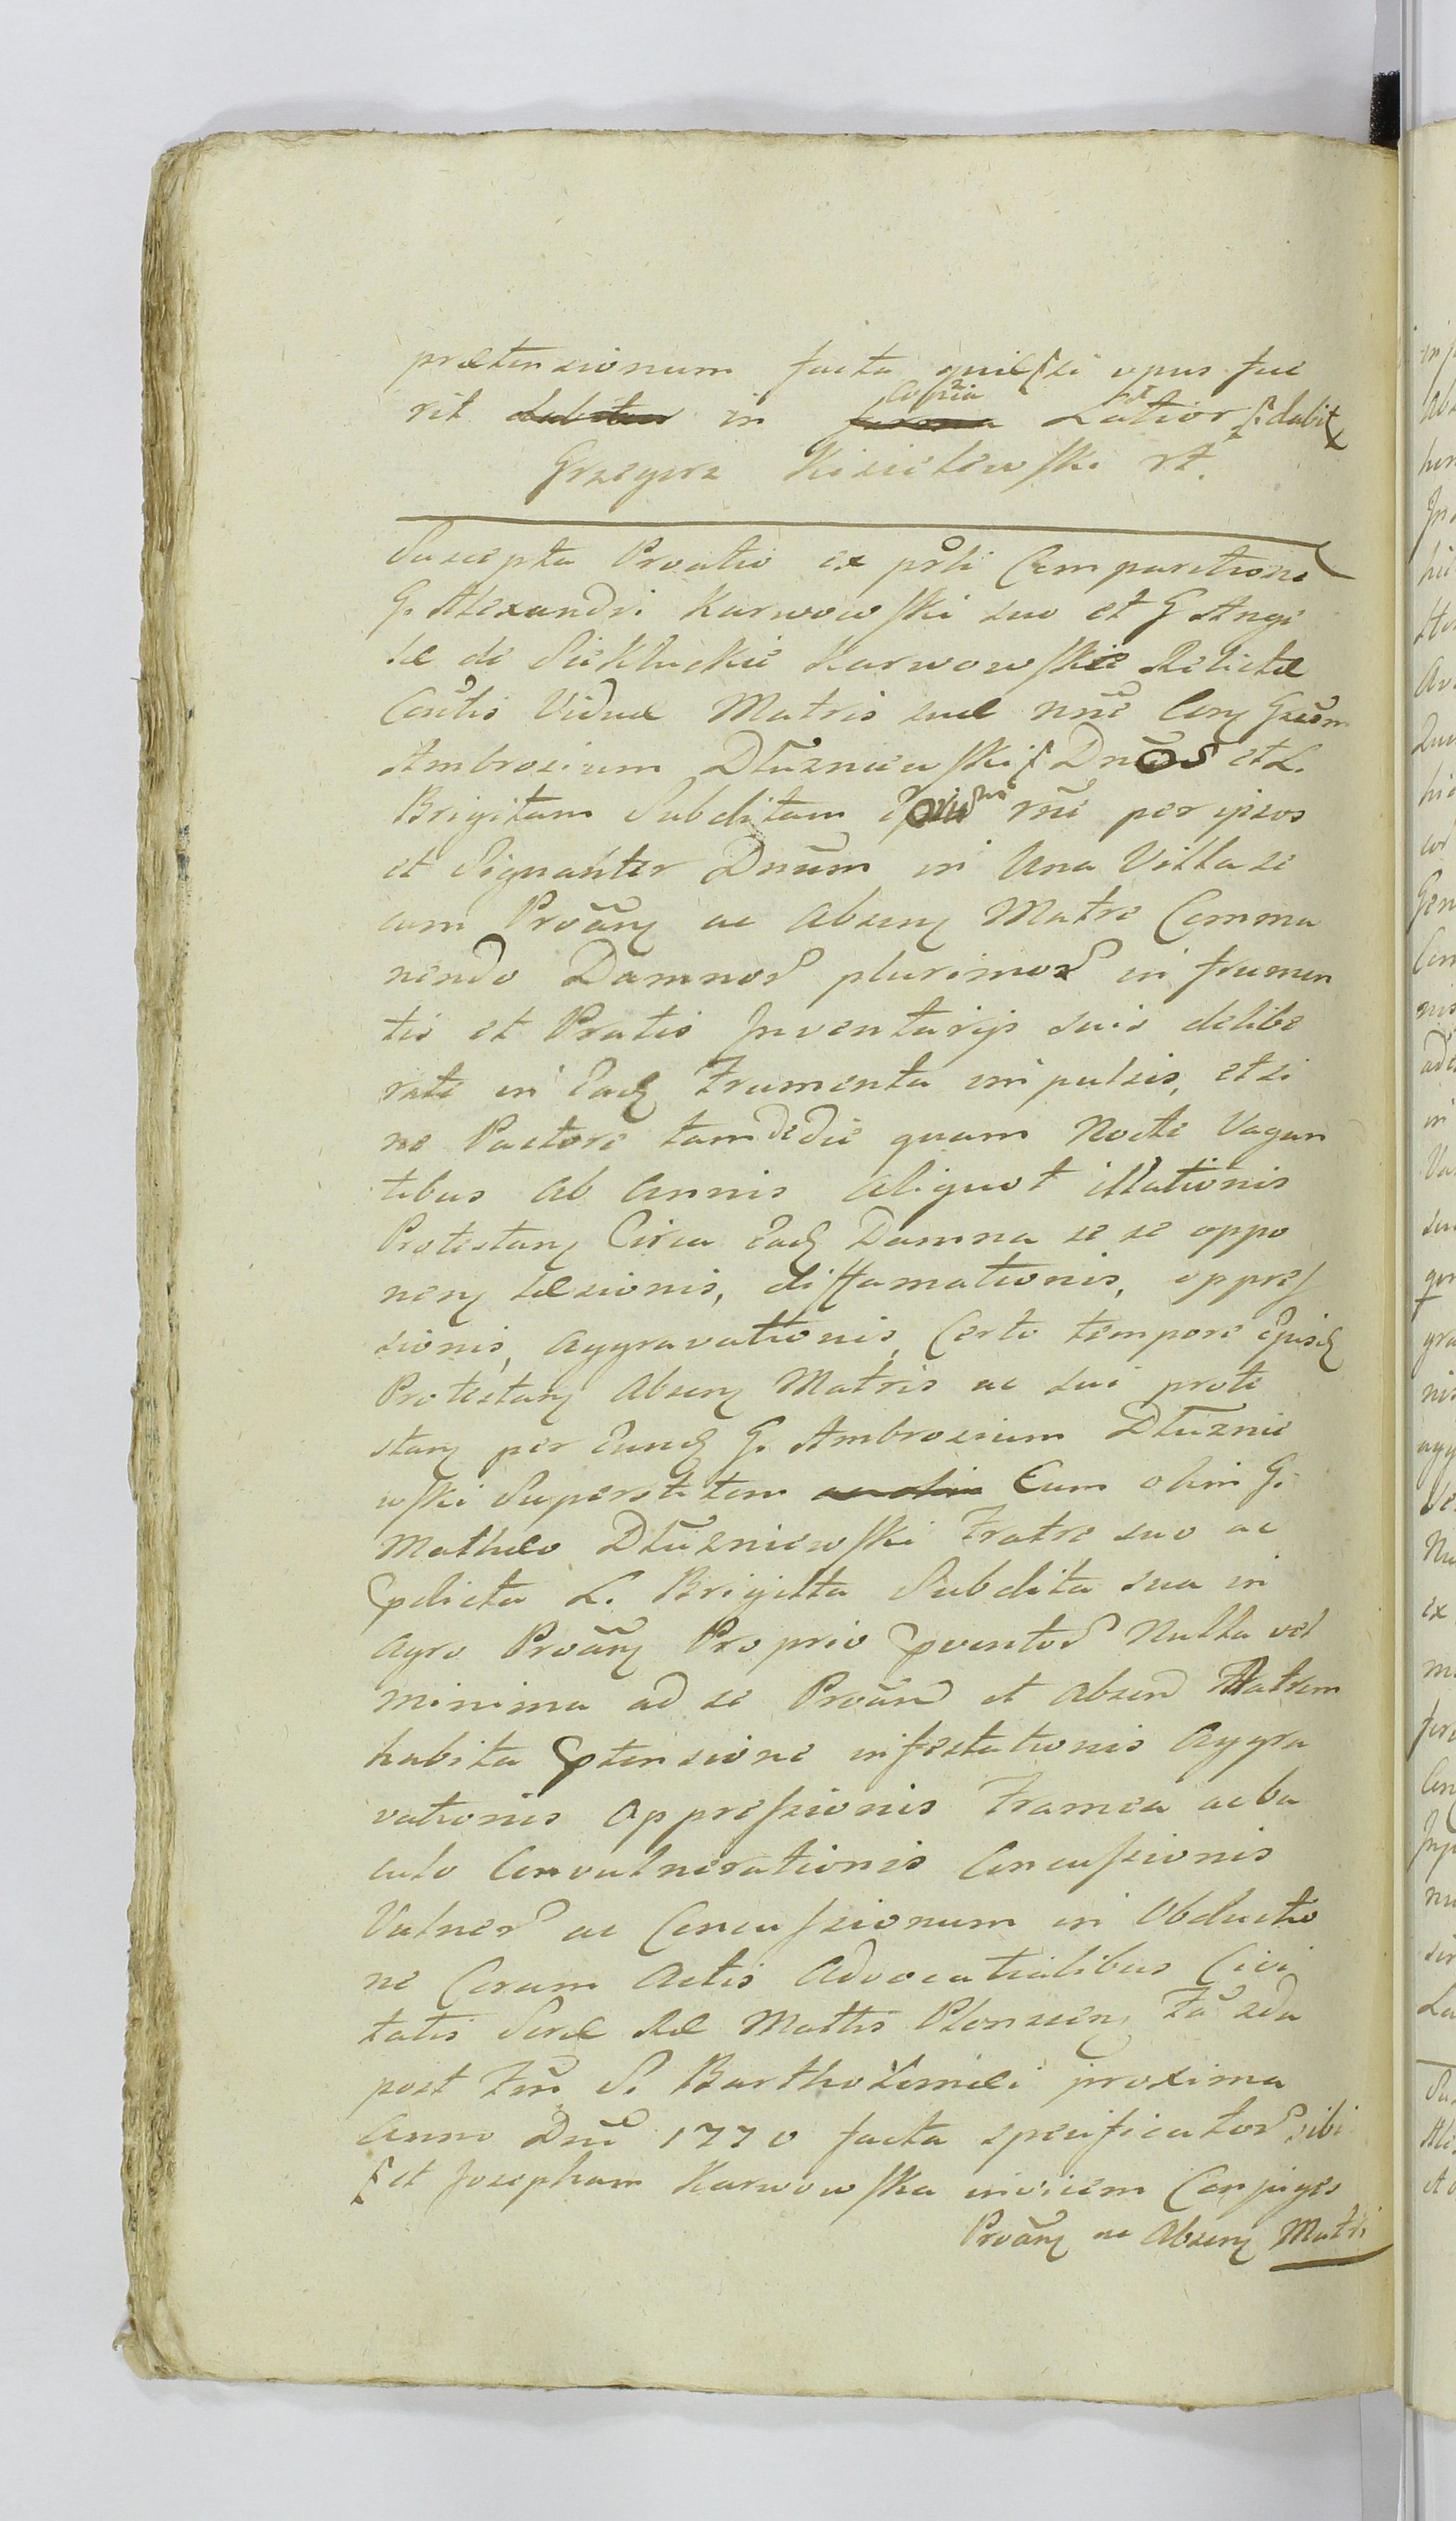 prætensionum facta quæ si opus fue
rit in copia Latior dabit
Grzegorz Kisielewski
Suscepta Protio ex prli Comparitione
G. Alexandri Karwowski suo et G Angi
læ de Karwowskie Relictæ
Viduæ Matris suæ nne Con Gsũm
Ambrosium Dłuzniewski Dnũ et L.
Brigitam Subditam rne per ipsos
et Signanter Dnũm in Una Villa se
cum Protãn ac absen Matre Comma
nendo Damnor plurimor in frumen
tis et Pratis Inventarijs suis delibe
rate in Ead Frumenta impulsis, et si
ne Pastore tam de die quam Nocte Vagan
tibus ab annis aliquot illationis
Protestan Circa Ead Damna se se oppo
nen læsionis, diffamationis, oppres
sionis, aggravationis, Certo tempore
Protestan absen Matris ac sui prote
stan per Eund G. Ambrosium Dłuznie
wski Superstitem Cum olim G.
Mathæo Dłuzniewski Fratre suo ac
pdicta L. Brigitta Subdita sua in
agro Protãn Proprio pventor Nulla vel
minima ad se Protãn et absen Matrem
habita ptensione infestationis Aggra
vationis Oppressionis Framea ac ba
culo Convulnerationis Concussionis
Vulner ac Concussionum in Obductio
ne Coram Actis Advocatialibus Civi
tatisRæ Mattis Plonscen Fa 2da
post Fm S. Bartholomæi proxima
Anno Dni 1770 facta specificator sibi
et Josepham Karwowska invicem Conjuges
Protãn ac Absen Matri